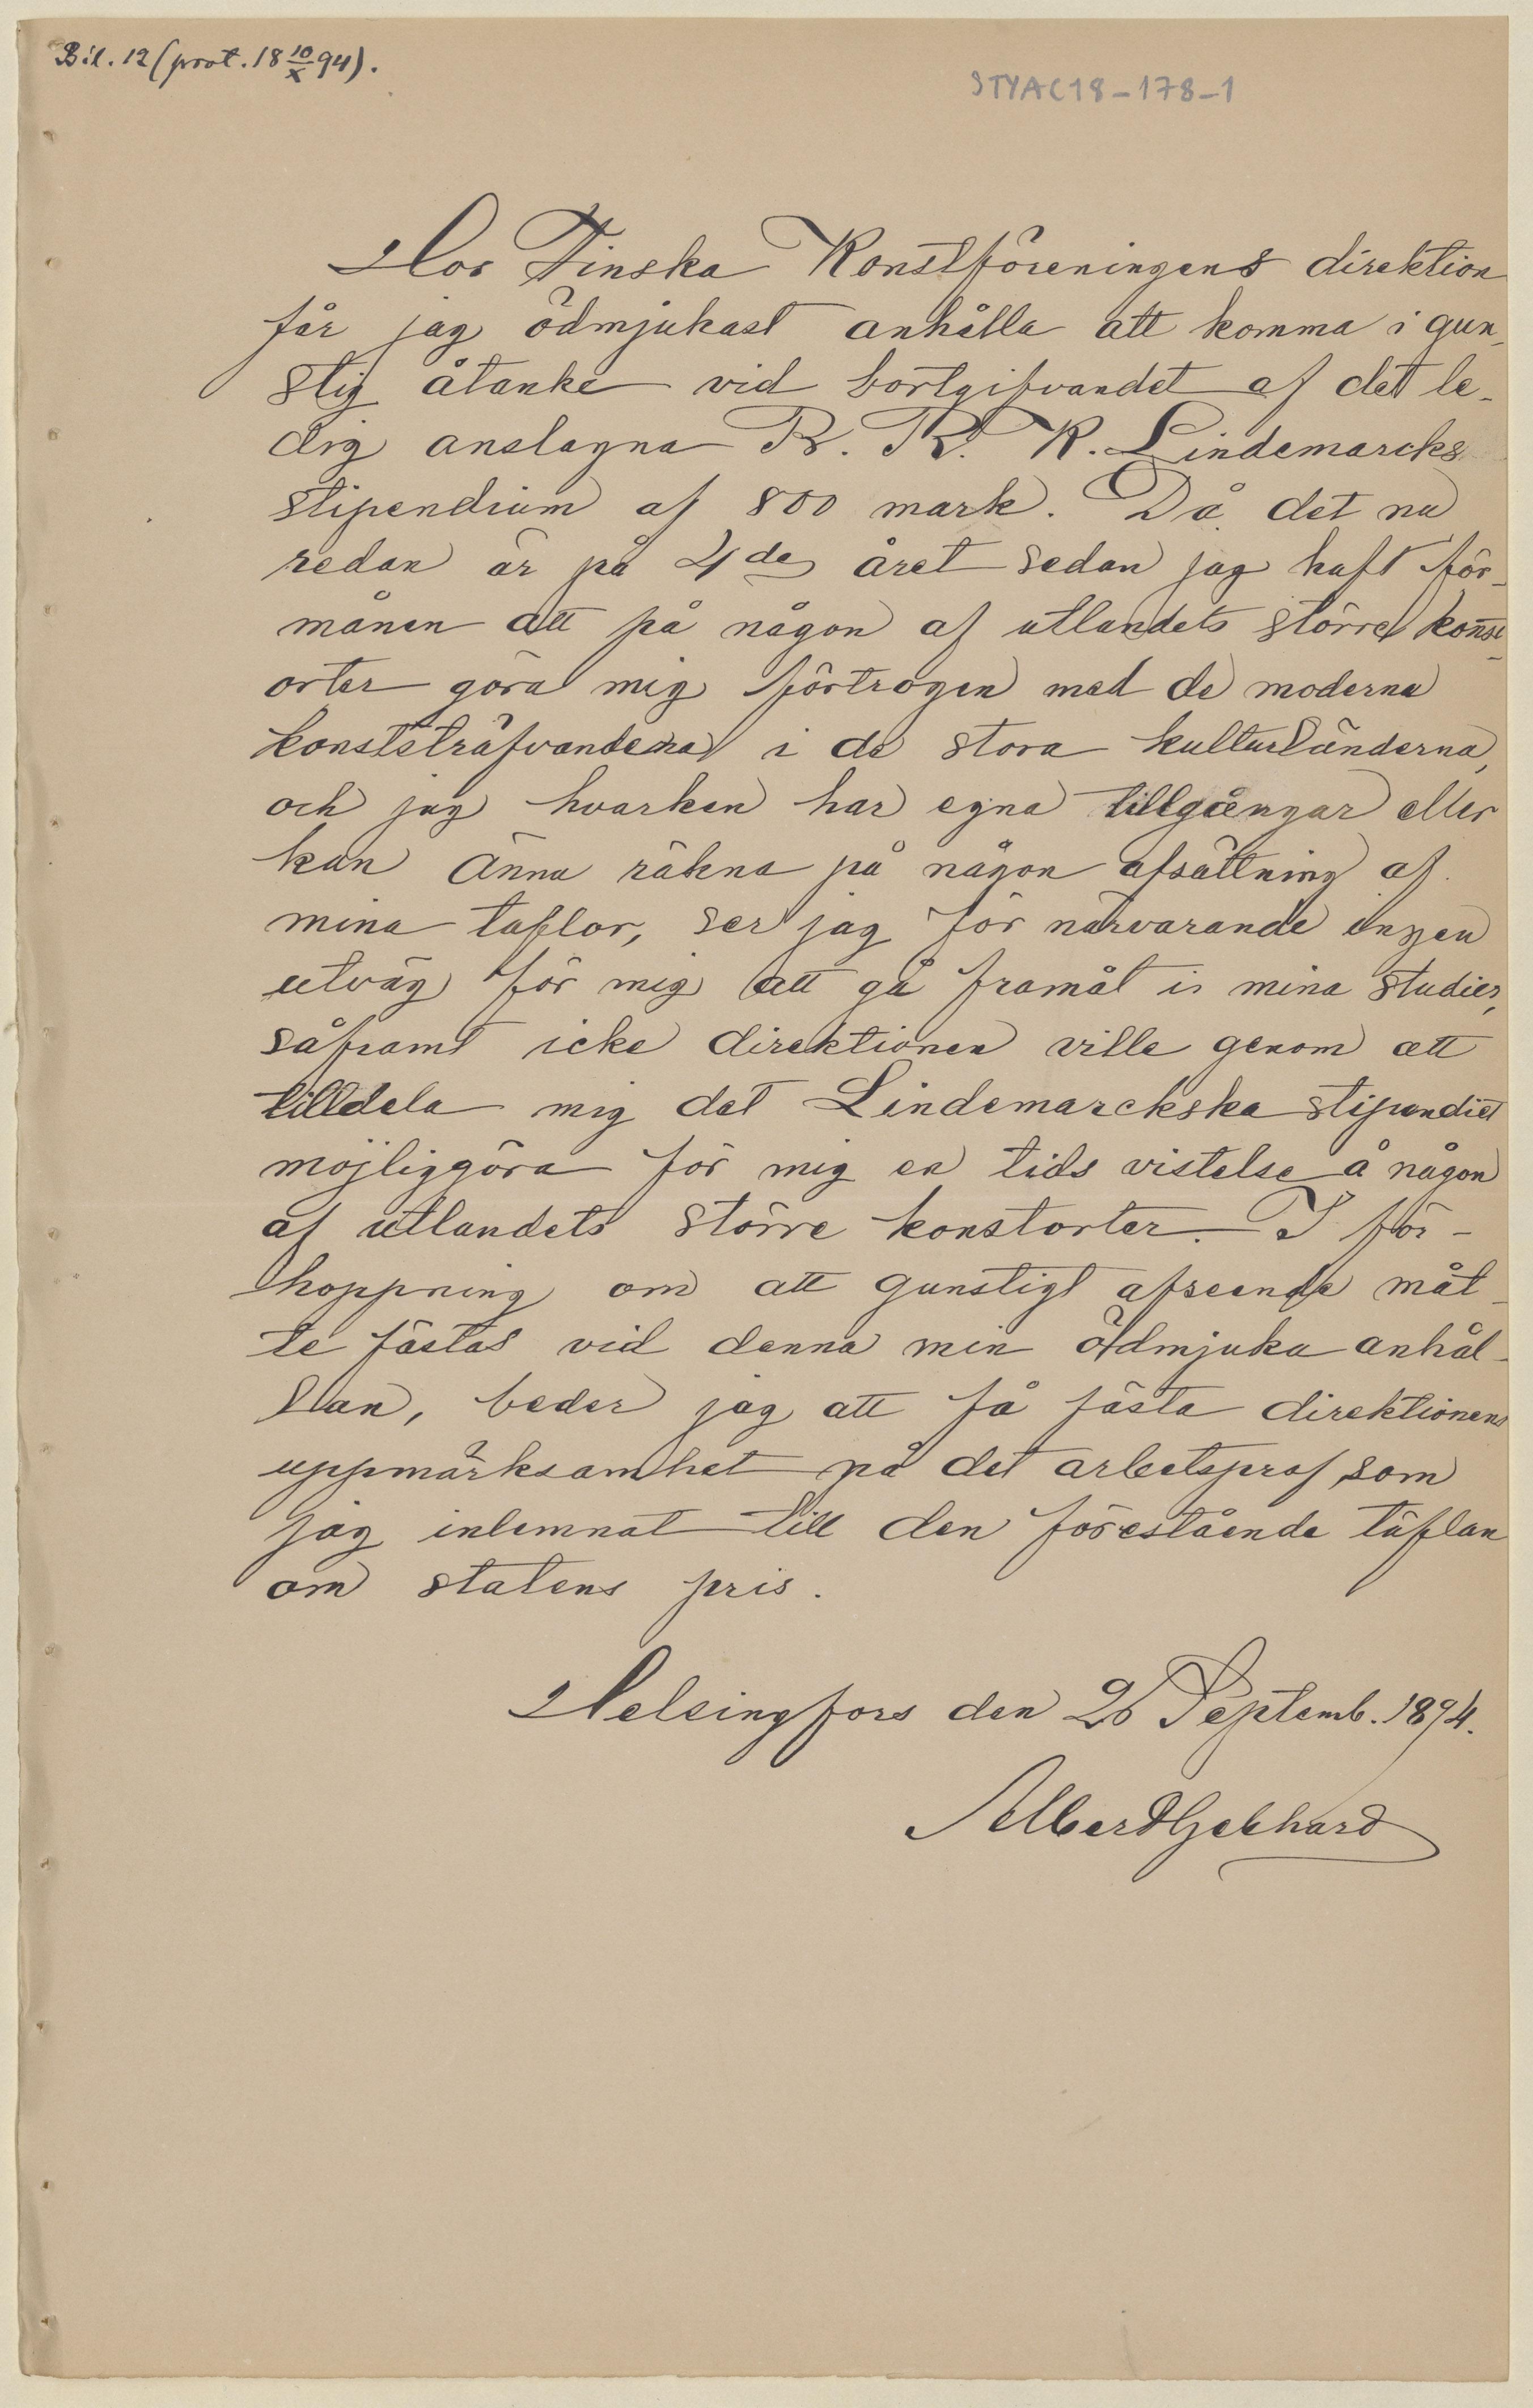 Bil. 12 (prot. 18 10/X 94).
STYAC18-178-1
Hos Finska Konstföreningens direktion
får jag ödmjukast anhålla att komma i gun-
stig åtanke vid bortgifvandet af det le-
dig anslagna B. R. K. Lindemarcks
stipendium af 800 mark. Då det nu
redan är på 4de året sedan jag haft för-
månen att på någon af utlandets större konst-
orter göra mig förtrogen med de moderna
konststräfvandena i de stora kulturländerna,
och jag hvarken har egna tillgångar eller
kan ännu räkna på någon afsättning af
mina taflor, ser jag för närvarande ingen
utväg för mig att gå framåt i mina studier,
såframt icke direktionen ville genom att
tilldela mig det Lindemarckska stipendiet
möjliggöra för mig en tids vistelse å någon
af utlandets större konstorter. I för-
hoppning om att gunstigt afseende måt-
te fästas vid denna min ödmjuka anhål-
lan, beder jag att få fästa direktionens
uppmärksamhet på det arbetsprof, som
jag inlemnat till den förestående täflan
om statens pris.
Helsingfors den 26 Septemb. 1894.
Albert Gebhard